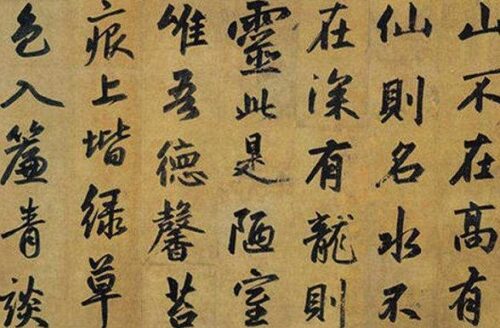 山不在高有
仙則名水不
在深有龍則
靈此是陋室
唯吾德馨苔
痕上堦绿草
色入簾青談